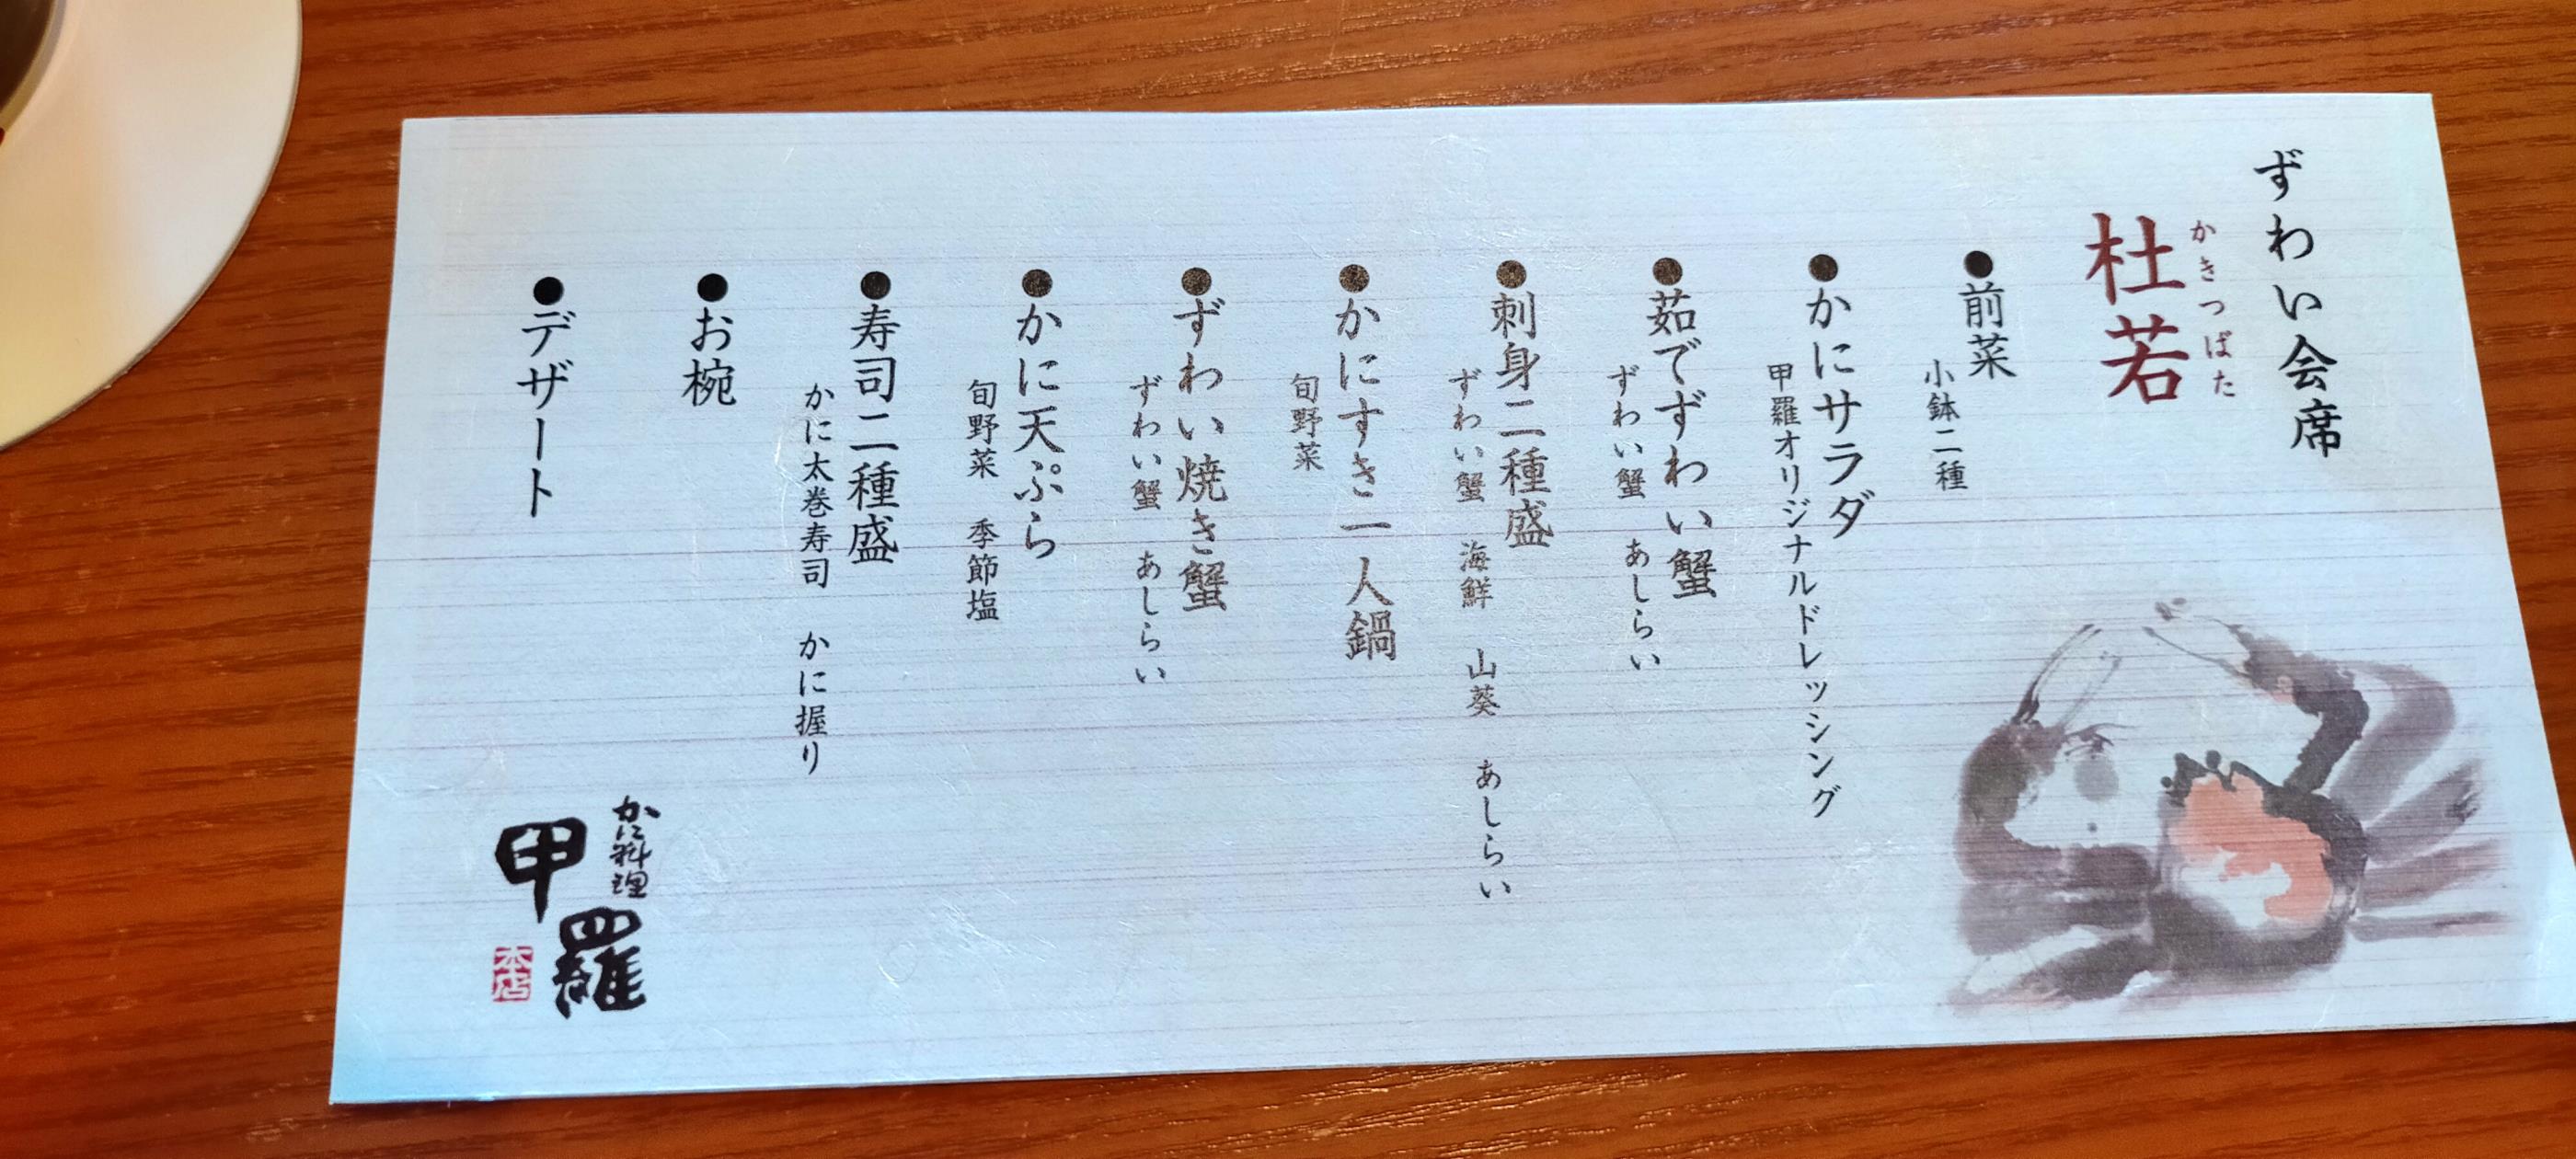 ずわい会席
かきつばた
杜若
●前菜
小鉢二種
●かにサラダ
甲羅オリジナルドレッシング
●茹でずわい蟹
ずわい蟹　あしらい
●刺身二種盛
ずわい蟹　海鮮　山葵　あしらい
●かにすき一人鍋
旬野菜
●ずわい焼き蟹
ずわい蟹　あしらい
●かに天ぷら
旬野菜　季節塩
●寿司二種盛
かに太巻寿司　かに握り
●お椀
●デザート
かに料理
甲羅
本店